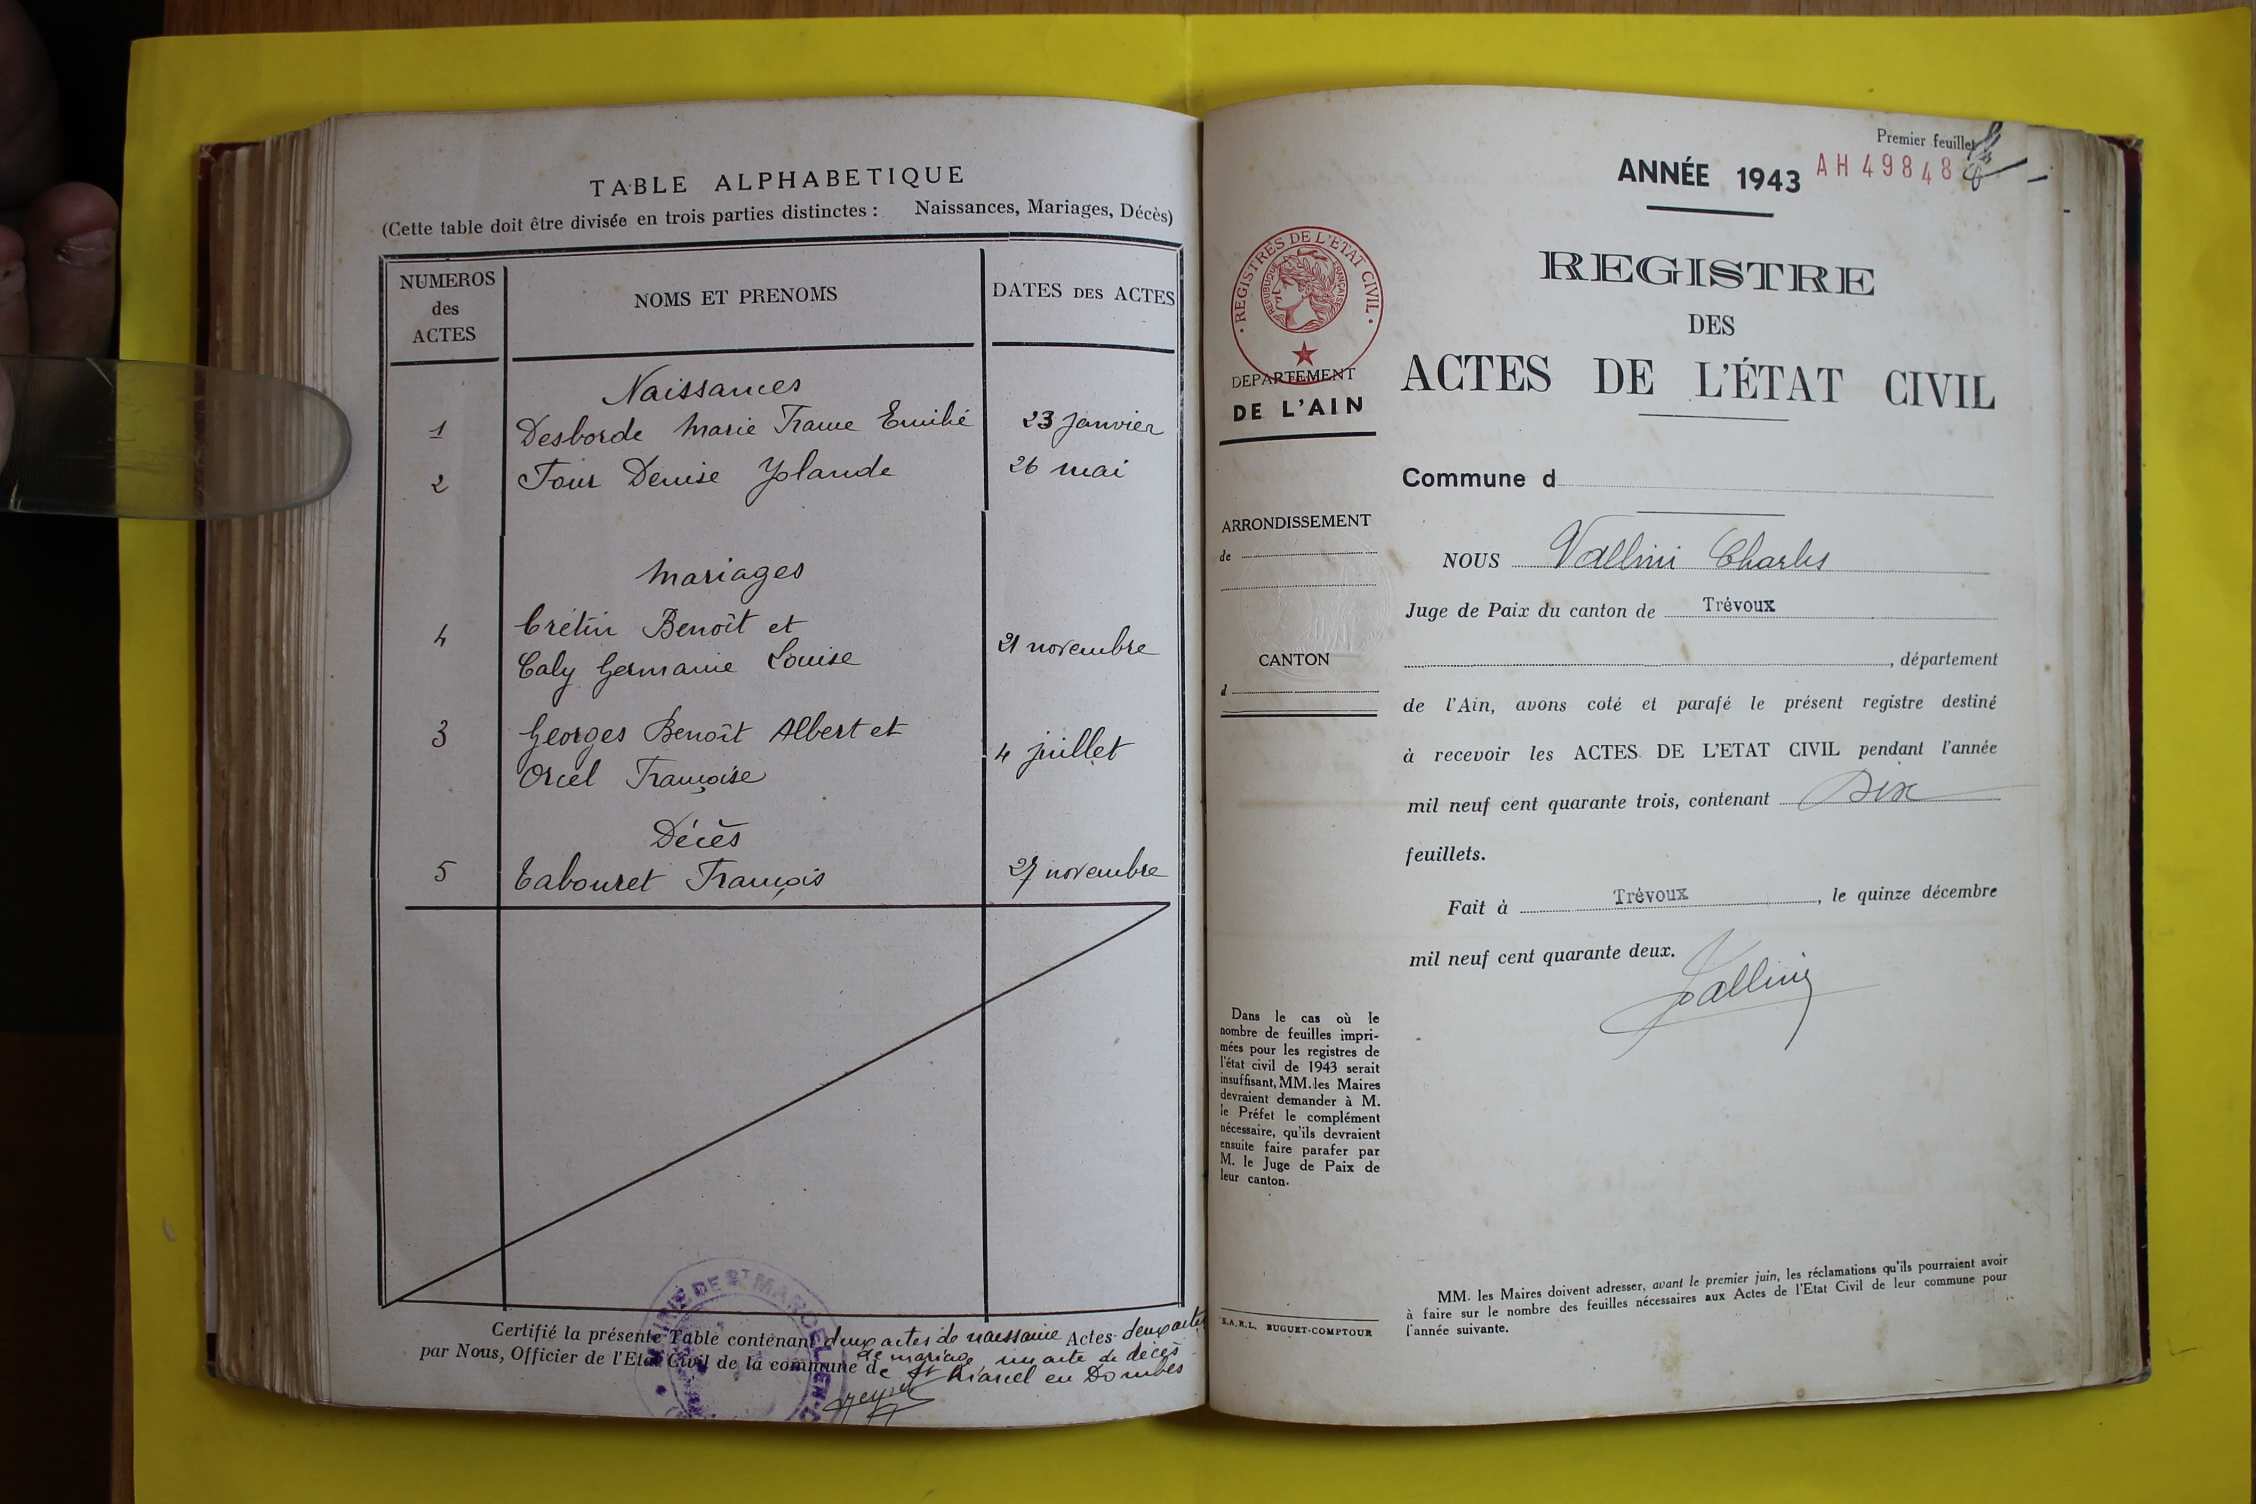 TABLE ALPHABETIQUE
(Cette table doit être divisée en trois parties distinctes : Naissances, Mariages, Décès)
NUMEROS des ACTES NOMS ET PRENOMS DATES DES ACTES
Naissances
1 Desborde Marie France Emilie 23 janvier
2 Four Denise Yolande 26 mai
Mariages
4 Crétin Benoît et
Caly Germaine Louise 21 novembre
3 Georges Benoît Albert et
Orcel Françoise 4 juillet
Décès
5 Tabouret François 27 novembre
Certifié la présente Table contenant deux actes de naissance Actes deux actes
de mariage, un acte de décès
par Nous, Officier de l'Etat Civil de la commune de St Marcel en Dombes
MAIRIE DE ST MARCEL-EN-D
Premier feuillet
ANNÉE 1943 AH 49848
REGISTRE
DES
ACTES DE L'ÉTAT CIVIL
· REGISTRES DE L'ETAT CIVIL ·
REPUBLIQUE FRANÇAISE
DEPARTEMENT
DE L'AIN
Commune d
ARRONDISSEMENT
de
CANTON
d
NOUS Vallini Charles
Juge de Paix du canton de Trévoux
, département
de l'Ain, avons coté et parafé le présent registre destiné
à recevoir les ACTES DE L'ETAT CIVIL pendant l'année
mil neuf cent quarante trois, contenant Dix
feuillets.
Fait à Trévoux, le quinze décembre
mil neuf cent quarante deux.
Vallini
Dans le cas où le
nombre de feuilles impri-
mées pour les registres de
l'état civil de 1943 serait
insuffisant, MM. les Maires
devraient demander à M.
le Préfet le complément
nécessaire, qu'ils devraient
ensuite faire parafer par
M. le Juge de Paix de
leur canton.
S.A.R.L. BUGUET-COMPTOUR
MM. les Maires doivent adresser, avant le premier juin, les réclamations qu'ils pourraient avoir
à faire sur le nombre des feuilles nécessaires aux Actes de l'Etat Civil de leur commune pour
l'année suivante.